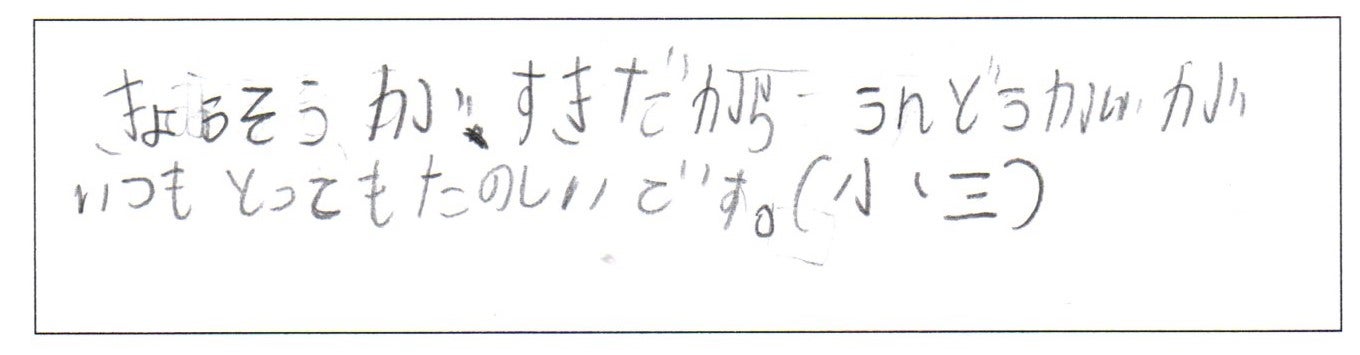 きょうそうが、すきだから うんどうかいが
いつもとってもたのしいです。(小三)